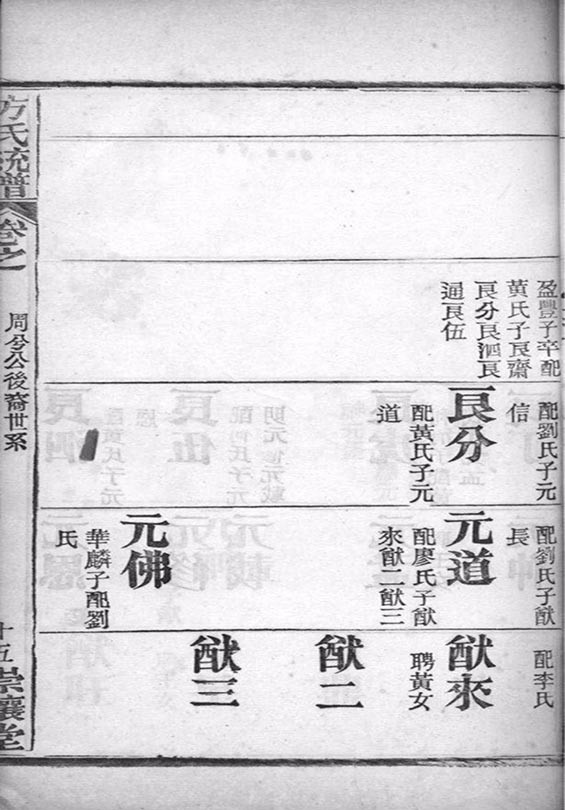 盈豐子卒配
黃氏子良齋
良分良泗良
通良伍
配劉氏子元
信
良分
配黃氏子元
道
配劉氏子猷
長
元道
配廖氏子猷
來猷二猷三
元佛
華麟子配劉
氏
配李氏
猷來
聘黃女
猷二
猷三
方氏統譜
卷之
周兮公後裔世系
十五
崇讓堂